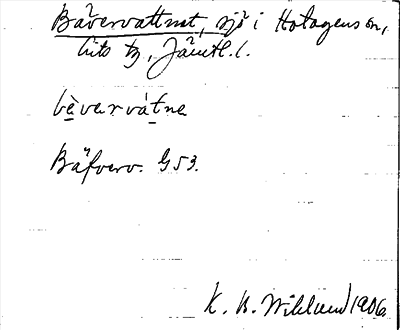 Bävervattnet, sjö i Hotagens sn,
Lits tg, Jämtl. l.
bèvarvátna
Bäfverv. G 53.
K. B. Wiklund 1906